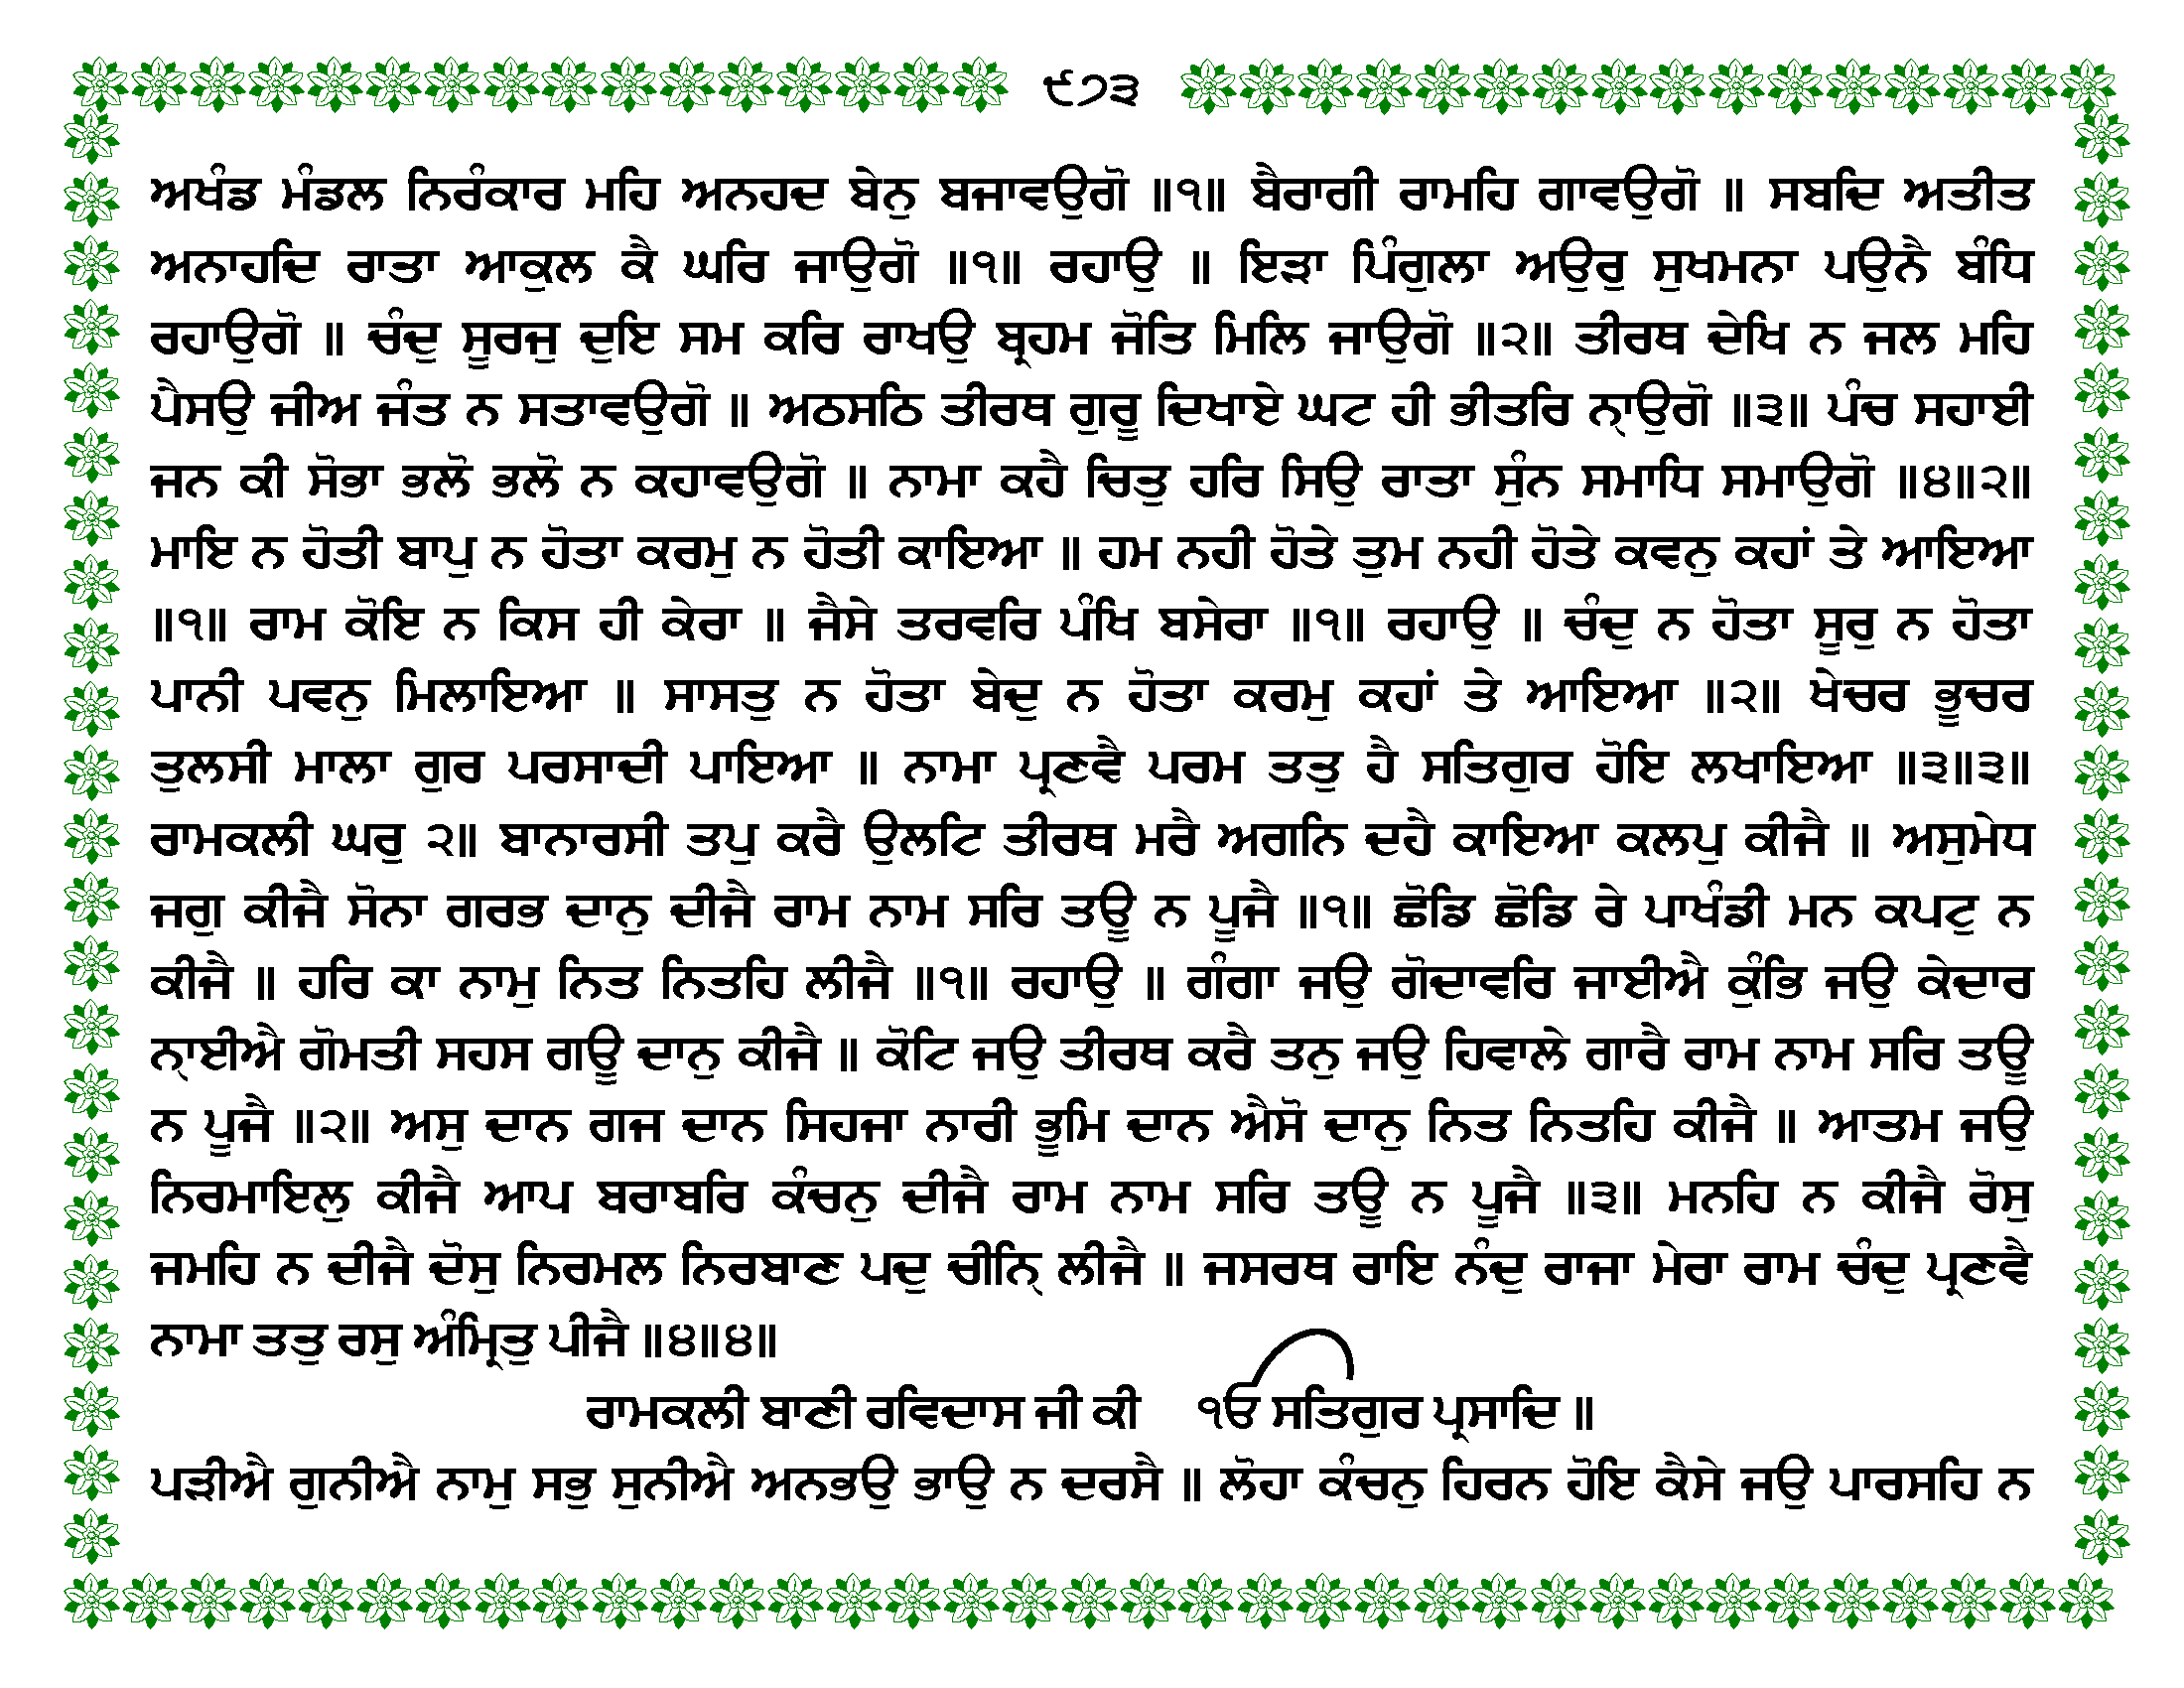 ੯੭੩
ਅਖੰਡ ਮੰਡਲ ਨਿਰੰਕਾਰ ਮਹਿ ਅਨਹਦ ਬੇਨੁ ਬਜਾਵਉਗੋ ॥੧॥ ਬੈਰਾਗੀ ਰਾਮਹਿ ਗਾਵਉਗੋ ॥ ਸਬਦਿ ਅਤੀਤ
ਅਨਾਹਦਿ ਰਾਤਾ ਆਕੁਲ ਕੈ ਘਰਿ ਜਾਉਗੋ ॥੧॥ ਰਹਾਉ ॥ ਇੜਾ ਪਿੰਗੁਲਾ ਅਉਰੁ ਸੁਖਮਨਾ ਪਉਨੈ ਬੰਧਿ
ਰਹਾਉਗੋ ॥ ਚੰਦੁ ਸੂਰਜੁ ਦੁਇ ਸਮ ਕਰਿ ਰਾਖਉ ਬ੍ਰਹਮ ਜੋਤਿ ਮਿਲਿ ਜਾਉਗੋ ॥੨॥ ਤੀਰਥ ਦੇਖਿ ਨ ਜਲ ਮਹਿ
ਪੈਸਉ ਜੀਅ ਜੰਤ ਨ ਸਤਾਵਉਗੋ ॥ ਅਠਸਠਿ ਤੀਰਥ ਗੁਰੂ ਦਿਖਾਏ ਘਟ ਹੀ ਭੀਤਰਿ ਨ੍ਹਾਉਗੋ ॥੩॥ ਪੰਚ ਸਹਾਈ
ਜਨ ਕੀ ਸੋਭਾ ਭਲੋ ਭਲੋ ਨ ਕਹਾਵਉਗੋ ॥ ਨਾਮਾ ਕਹੈ ਚਿਤੁ ਹਰਿ ਸਿਉ ਰਾਤਾ ਸੁੰਨ ਸਮਾਧਿ ਸਮਾਉਗੋ ॥੪॥੨॥
ਮਾਇ ਨ ਹੋਤੀ ਬਾਪੁ ਨ ਹੋਤਾ ਕਰਮੁ ਨ ਹੋਤੀ ਕਾਇਆ ॥ ਹਮ ਨਹੀ ਹੋਤੇ ਤੁਮ ਨਹੀ ਹੋਤੇ ਕਵਨੁ ਕਹਾਂ ਤੇ ਆਇਆ
॥੧॥ ਰਾਮ ਕੋਇ ਨ ਕਿਸ ਹੀ ਕੇਰਾ ॥ ਜੈਸੇ ਤਰਵਰਿ ਪੰਖਿ ਬਸੇਰਾ ॥੧॥ ਰਹਾਉ ॥ ਚੰਦੁ ਨ ਹੋਤਾ ਸੂਰੁ ਨ ਹੋਤਾ
ਪਾਨੀ ਪਵਨੁ ਮਿਲਾਇਆ ॥ ਸਾਸਤੁ ਨ ਹੋਤਾ ਬੇਦੁ ਨ ਹੋਤਾ ਕਰਮੁ ਕਹਾਂ ਤੇ ਆਇਆ ॥੨॥ ਖੇਚਰ ਭੂਚਰ
ਤੁਲਸੀ ਮਾਲਾ ਗੁਰ ਪਰਸਾਦੀ ਪਾਇਆ ॥ ਨਾਮਾ ਪ੍ਰਣਵੈ ਪਰਮ ਤਤੁ ਹੈ ਸਤਿਗੁਰ ਹੋਇ ਲਖਾਇਆ ॥੩॥੩॥
ਰਾਮਕਲੀ ਘਰੁ ੨॥ ਬਾਨਾਰਸੀ ਤਪੁ ਕਰੈ ਉਲਟਿ ਤੀਰਥ ਮਰੈ ਅਗਨਿ ਦਹੈ ਕਾਇਆ ਕਲਪੁ ਕੀਜੈ ॥ ਅਸੁਮੇਧ
ਜਗੁ ਕੀਜੈ ਸੋਨਾ ਗਰਭ ਦਾਨੁ ਦੀਜੈ ਰਾਮ ਨਾਮ ਸਰਿ ਤਊ ਨ ਪੂਜੈ ॥੧॥ ਛੋਡਿ ਛੋਡਿ ਰੇ ਪਾਖੰਡੀ ਮਨ ਕਪਟੁ ਨ
ਕੀਜੈ ॥ ਹਰਿ ਕਾ ਨਾਮੁ ਨਿਤ ਨਿਤਹਿ ਲੀਜੈ ॥੧॥ ਰਹਾਉ ॥ ਗੰਗਾ ਜਉ ਗੋਦਾਵਰਿ ਜਾਈਐ ਕੁੰਭਿ ਜਉ ਕੇਦਾਰ
ਨ੍ਹਾਈਐ ਗੋਮਤੀ ਸਹਸ ਗਊ ਦਾਨੁ ਕੀਜੈ ॥ ਕੋਟਿ ਜਉ ਤੀਰਥ ਕਰੈ ਤਨੁ ਜਉ ਹਿਵਾਲੇ ਗਾਰੈ ਰਾਮ ਨਾਮ ਸਰਿ ਤਊ
ਨ ਪੂਜੈ ॥੨॥ ਅਸੁ ਦਾਨ ਗਜ ਦਾਨ ਸਿਹਜਾ ਨਾਰੀ ਭੂਮਿ ਦਾਨ ਐਸੋ ਦਾਨੁ ਨਿਤ ਨਿਤਹਿ ਕੀਜੈ ॥ ਆਤਮ ਜਉ
ਨਿਰਮਾਇਲੁ ਕੀਜੈ ਆਪ ਬਰਾਬਰਿ ਕੰਚਨੁ ਦੀਜੈ ਰਾਮ ਨਾਮ ਸਰਿ ਤਊ ਨ ਪੂਜੈ ॥੩॥ ਮਨਹਿ ਨ ਕੀਜੈ ਰੋਸੁ
ਜਮਹਿ ਨ ਦੀਜੈ ਦੋਸੁ ਨਿਰਮਲ ਨਿਰਬਾਣ ਪਦੁ ਚੀਨ੍ਹਿ ਲੀਜੈ ॥ ਜਸਰਥ ਰਾਇ ਨੰਦੁ ਰਾਜਾ ਮੇਰਾ ਰਾਮ ਚੰਦੁ ਪ੍ਰਣਵੈ
ਨਾਮਾ ਤਤੁ ਰਸੁ ਅੰਮ੍ਰਿਤੁ ਪੀਜੈ ॥੪॥੪॥
ਰਾਮਕਲੀ ਬਾਣੀ ਰਵਿਦਾਸ ਜੀ ਕੀ ੴ ਸਤਿਗੁਰ ਪ੍ਰਸਾਦਿ ॥
ਪੜੀਐ ਗੁਨੀਐ ਨਾਮੁ ਸਭੁ ਸੁਨੀਐ ਅਨਭਉ ਭਾਉ ਨ ਦਰਸੈ ॥ ਲੋਹਾ ਕੰਚਨੁ ਹਿਰਨ ਹੋਇ ਕੈਸੇ ਜਉ ਪਾਰਸਹਿ ਨ